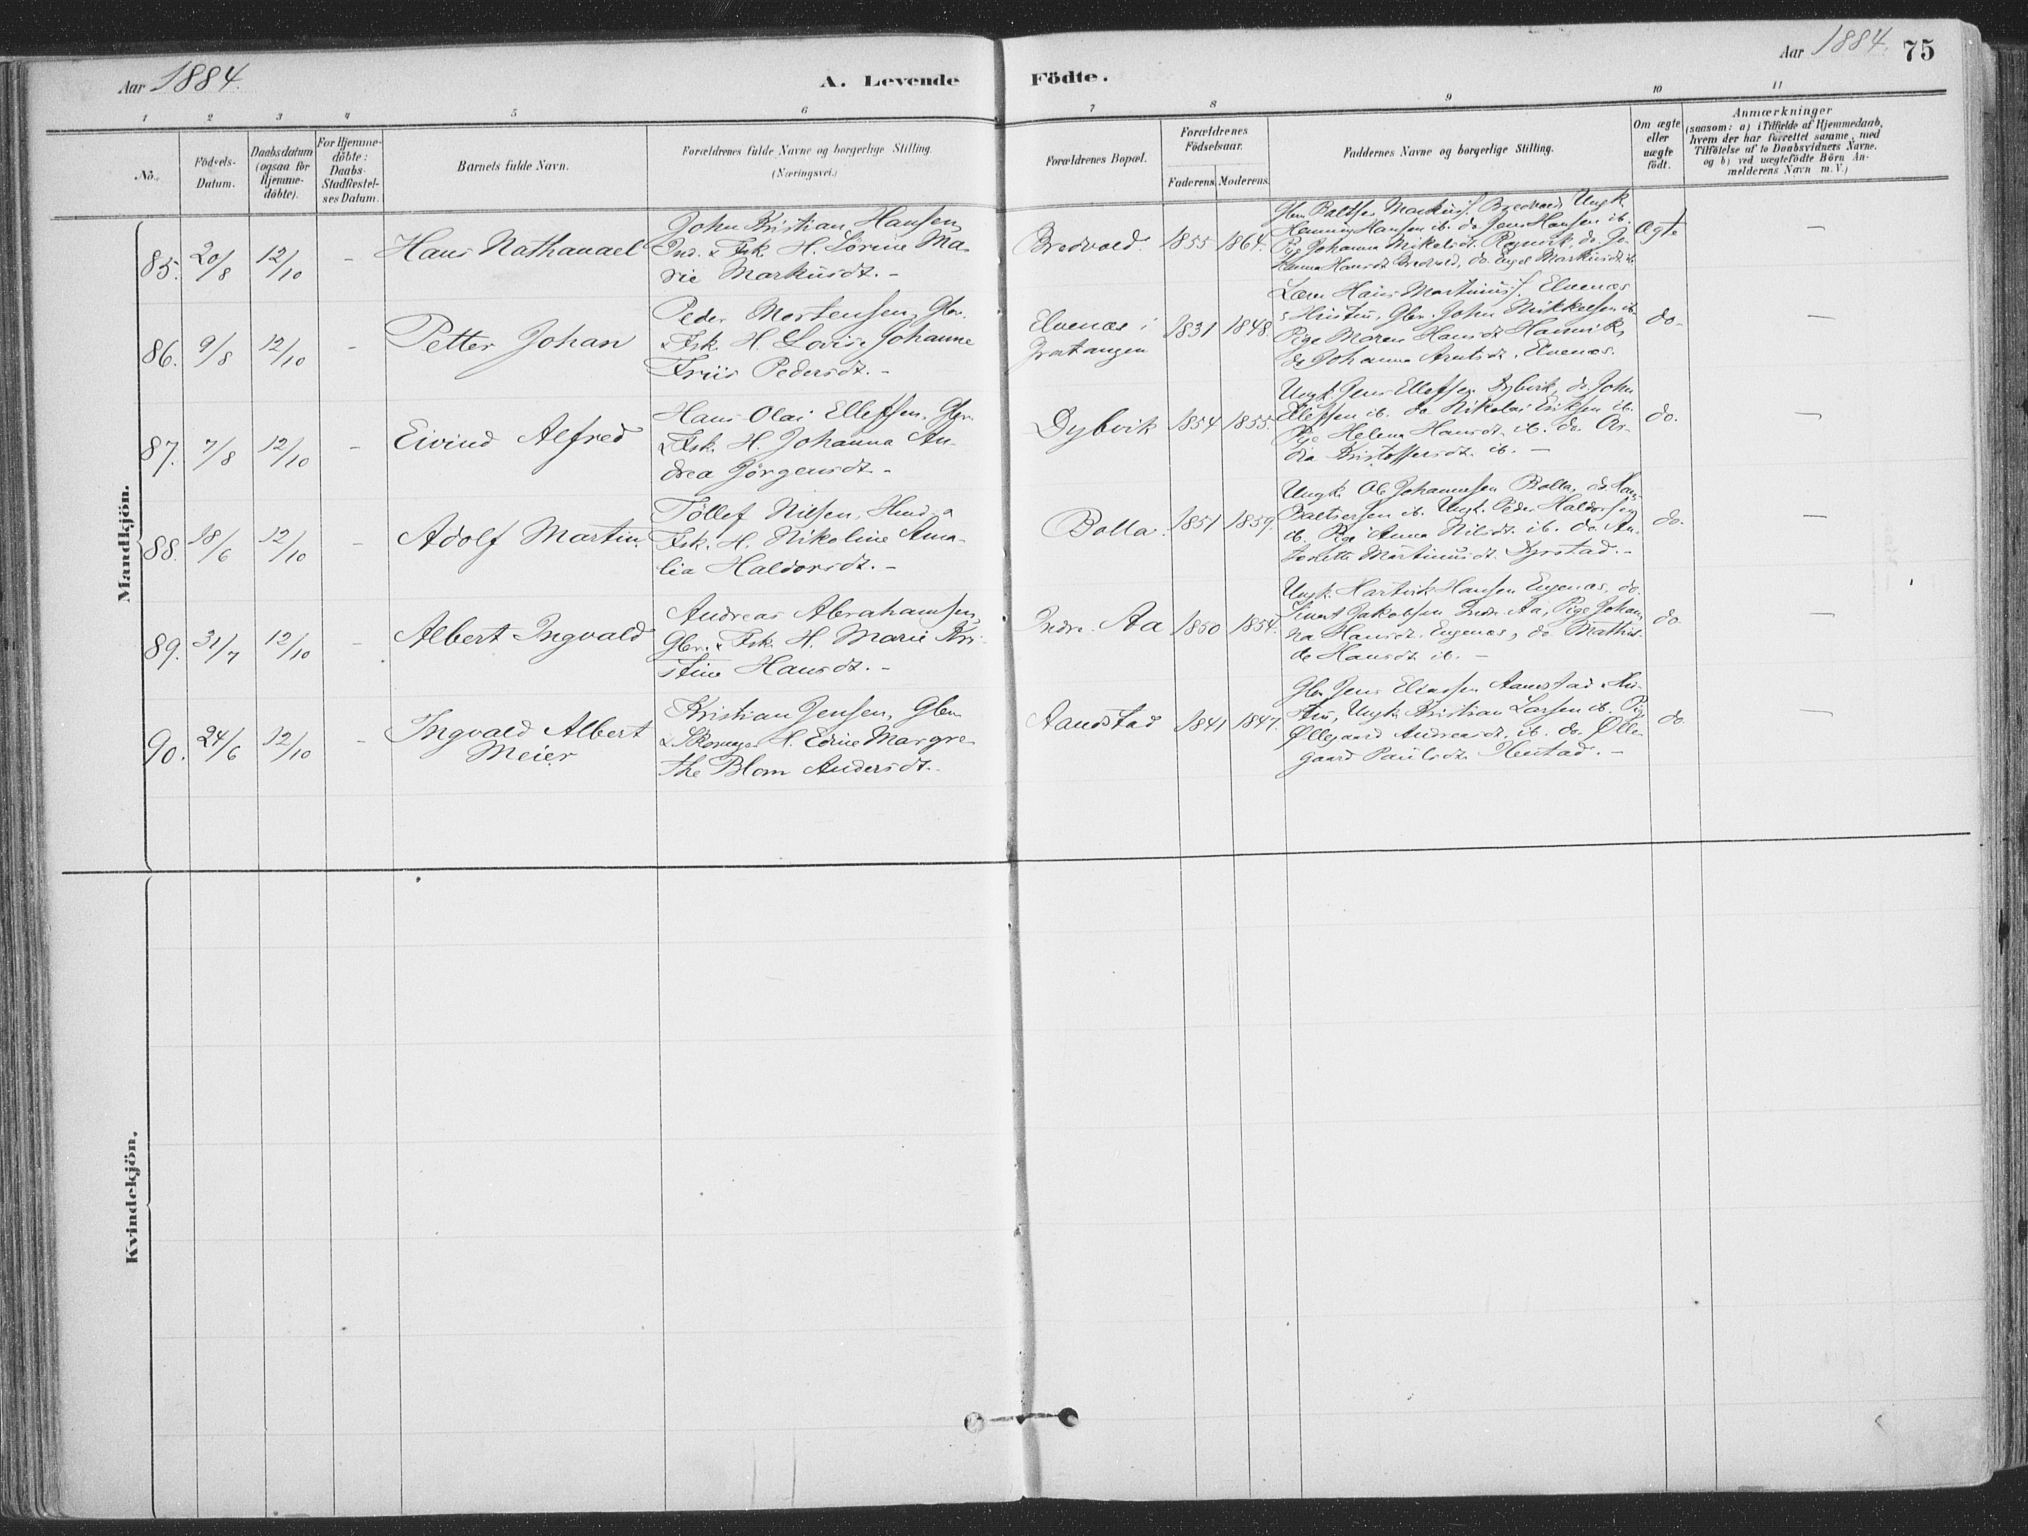 Aar 1884.
A. Levende Födte.
Aar 1884. 75
1 2 3 4 5 6 7 8 9 10 11
No.
Födsels-
Datum.
Daabsdatum
(ogsaa for
Hjemme-
døbte).
For Hjemme-
döbte:
Daabs-
Stadfæstel-
ses Datum.
Barnets fulde Navn.
Forældrenes fulde Navne og borgerlige Stilling.
(Næringsvei.)
Forældrenes Bopæl.
Forældrenes
Födselsaar.
Faderens. Moderens.
Faddernes Navne og borgerlige Stilling.
Om ægte
eller
uægte
födt.
Anmærkninger
(saasom: a) i Tilfælde af Hjemmedaab,
hvem der har forrettet samme, med
Tilföielse af to Daabsvidners Navne,
og b) ved uægtefödte Börn An-
melderens Navn m. V.)
Mandkjön.
85. 20/8 12/10 - Hans Nathanael
John Kristian Hansen
Ind. & Fsk. H. Lorine Ma-
rie Markusdt. -
Bredvold. 1855 1864.
Gbr Baltser Markus. Bredvold Ungk
Henning Hansen ib. do Jens Hansen ib.
Pige Johanna Mikalsdt Røkenes, do Jo-
hanna Hansdt Bredvold, do. Inger Markusdt ib
Ægte -
86. 9/8 12/10 - Petter Johan
Peder Mortensen, Gbr.
& Fsk. H. Lovise Johanne
Friis Pedersdt. -
Elvenæs i
Gratangen 1831 1848.
Lærer Hans Martinus. Elvenæs
& Hustru, Gbr. John Mikkelsen ib
Pige Maren Hansdt Hamnvik,
do Johanna Arntsdt. Elvenæs.
do. -
87. 7/8 12/10 - Eivind Alfred
Hans Olai Ellefsen, Gbr.
& Fsk. H. Johanna An-
drea Jørgensdt. -
Dybvik 1854 1855.
Ungk. Jens Ellefsen Dybvik, do. John
Ellefsen ib. do. Nikolai Eriksen ib.
Pige Helena Hansdt. ib. do. 
Kristoffersdt. ib. -
do. -
88. 18/6 12/10 - Adolf Martin.
Tollef Nilsen, Husd. &
Fsk. H. Nikoline Ama-
lia Haldorsdt. -
Bolla. 1851 1859.
Ungk. Ole Johannesen Bolla, do. Hans
Baltsersen ib. Ungk. Peder Haldorsen
ib. Pige Anna Nilsdt. ib. do. An-
tonette Martinusdt. Dyrstad. -
do. -
89. 31/7 12/10 - Albert Ingvald
Andreas Abrahamsen,
Gbr. & Fsk. H. Marie Kri-
stine Hansdt. -
Indre Aa 1850 1854.
Ungk. Hartvik Hansen Engenæs, do.
Sivert Jakobsen Indre Aa, Pige Johan
na Hansdt. Engenæs, do. Mathil-
de Hansdt. ib. -
do. -
90. 24/6 12/10 - Ingvald Albert
Meier
Kristian Jensen, Gbr.
& Skomager H. Edine Margre-
the Blom Andersdt. -
Aanstad 1841 1847.
Gbr Jens Eliassen Aanstad & Hu-
stru, Ungk. Kristian Larsen ib. Pig
Øllegaard Andreasdt. ib. do. Ølle-
gaard Paulsdt. -
do. -
Kvindekjön.